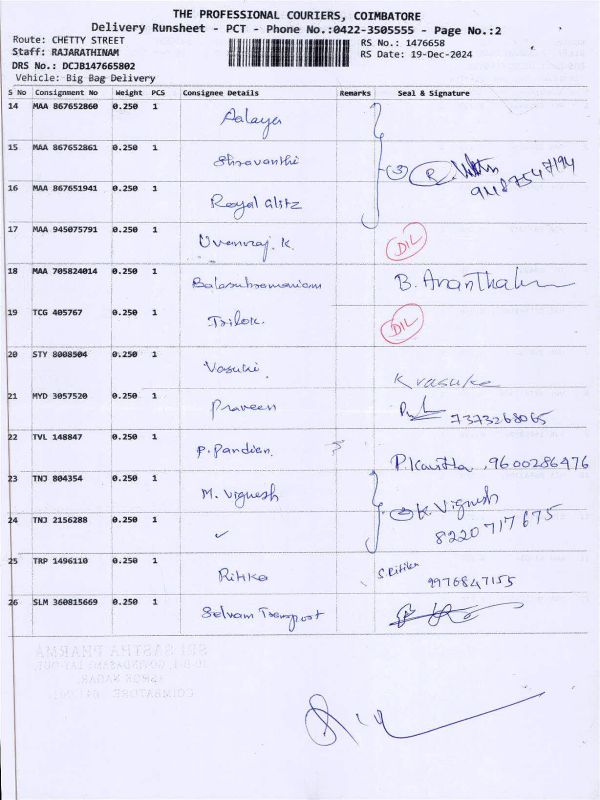 THE PROFESSIONAL COURIERS, COIMBATORE
Delivery Runsheet - PCT - Phone No.:0422-3505555 - Page No.:2
Route: CHETTY STREET
Staff: RAJARATHINAM
DRS No.: DCJB147665802
Vehicle: Big Bag Delivery
RS No.: 1476658
RS Date: 19-Dec-2024
S No Consignment No Weight PCS Consignee Details Remarks Seal & Signature
14 MAA 867652860 0.250 1 Aalaya
15 MAA 867652861 0.250 1 Shravanthi
16 MAA 867651941 0.250 1 Royal Glitz
(3) R.
9487547194
17 MAA 945075791 0.250 1 K. DIL
18 MAA 705824014 0.250 1 Balasubramaniam B.
19 TCG 405767 0.250 1 Trilok. DIL
20 STY 8008504 0.250 1 Vasuki. K vasuke
21 MYD 3057520 0.250 1 Praveen 7373268065
22 TVL 148847 0.250 1 P. Pandian. P. Kavitha. 9600286476
23 TNJ 804354 0.250 1 M. Vignesh K. Vignesh
24 TNJ 2156288 0.250 1 ✓ 8220717675
25 TRP 1496110 0.250 1 Ritika S Ritika
9976847155
26 SLM 360815669 0.250 1 Selvam Transport
SRI SASTHA PHARMA
NAGAR,
COIMBATORE